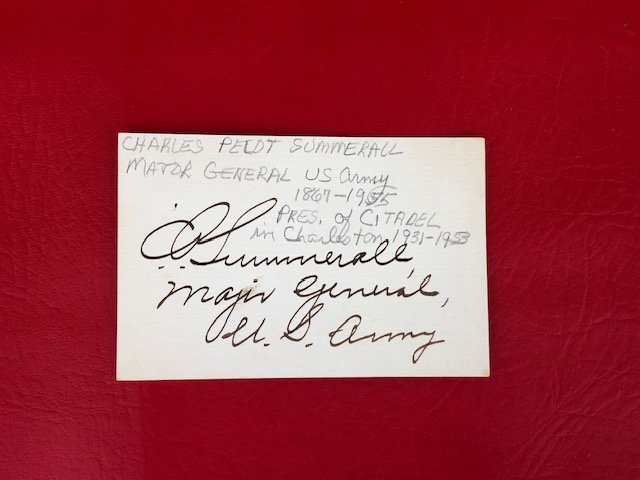 CHARLES PELOT SUMMERALL
MAJOR GENERAL US Army
1867-1955
PRES. of CITADEL
in Charleston, 1931-1953
C.P. Summerall,
Major General,
U. S. Army